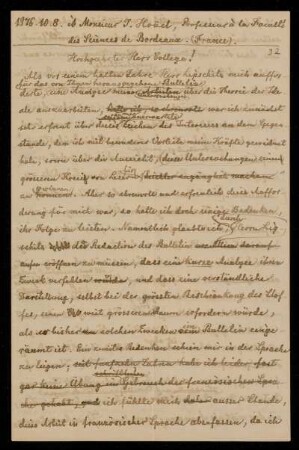 1876.10.8. à Monsieur J. Hoüel, Professeur à la Faculté
des Sciences de Bordeaux. (France).
Hochgeehrter Herr College!
Als vor einem halben Jahre Herr Lipschitz mich aufforderte,
für das von Ihnen herausgegebene Bulletin
eine Analyse meiner Arbeiten über die Theorie der Ideale
auszuarbeiten, so war ich zunächst
sehr erfreut über dieses Zeichen des Interesses an dem Gegenstande,
den ich mit besonderer Vorliebe meine Kräfte gewidmet
habe, sowie über die Aussicht, diese Untersuchungen einem
grösseren Kreis von Lesern leichter zugänglich machen
zu können. Aber so ehrenvoll und erfreulich diese Aufforderung
für mich war, so hatte ich doch einige Bedenken,
ihr Folge zu leisten. Namentlich glaubte ich, Herrn Lipschitz
und die Redaction des Bulletin darauf
aufmerksam machen zu müssen, dass eine kurze Analyse ihren
Zweck verfehlen würde, und dass eine verständliche
Darstellung, selbst bei der grössten Beschränkung des Stoffes,
einen viel grösseren Raum erfordern würde,
als bisher zu solchen Zwecken im Bulletin eingeräumt
ist. Ein zweites Bedenken schien mir in der Sprache
zu liegen; seit funfzehn Jahren habe ich leider fast
gar keine Übung im Gebrauch der französischen Sprache
gehabt, und ich fühlte mich daher ausser Stande,
diese Arbeit in französischer Sprache abzufassen, da ich